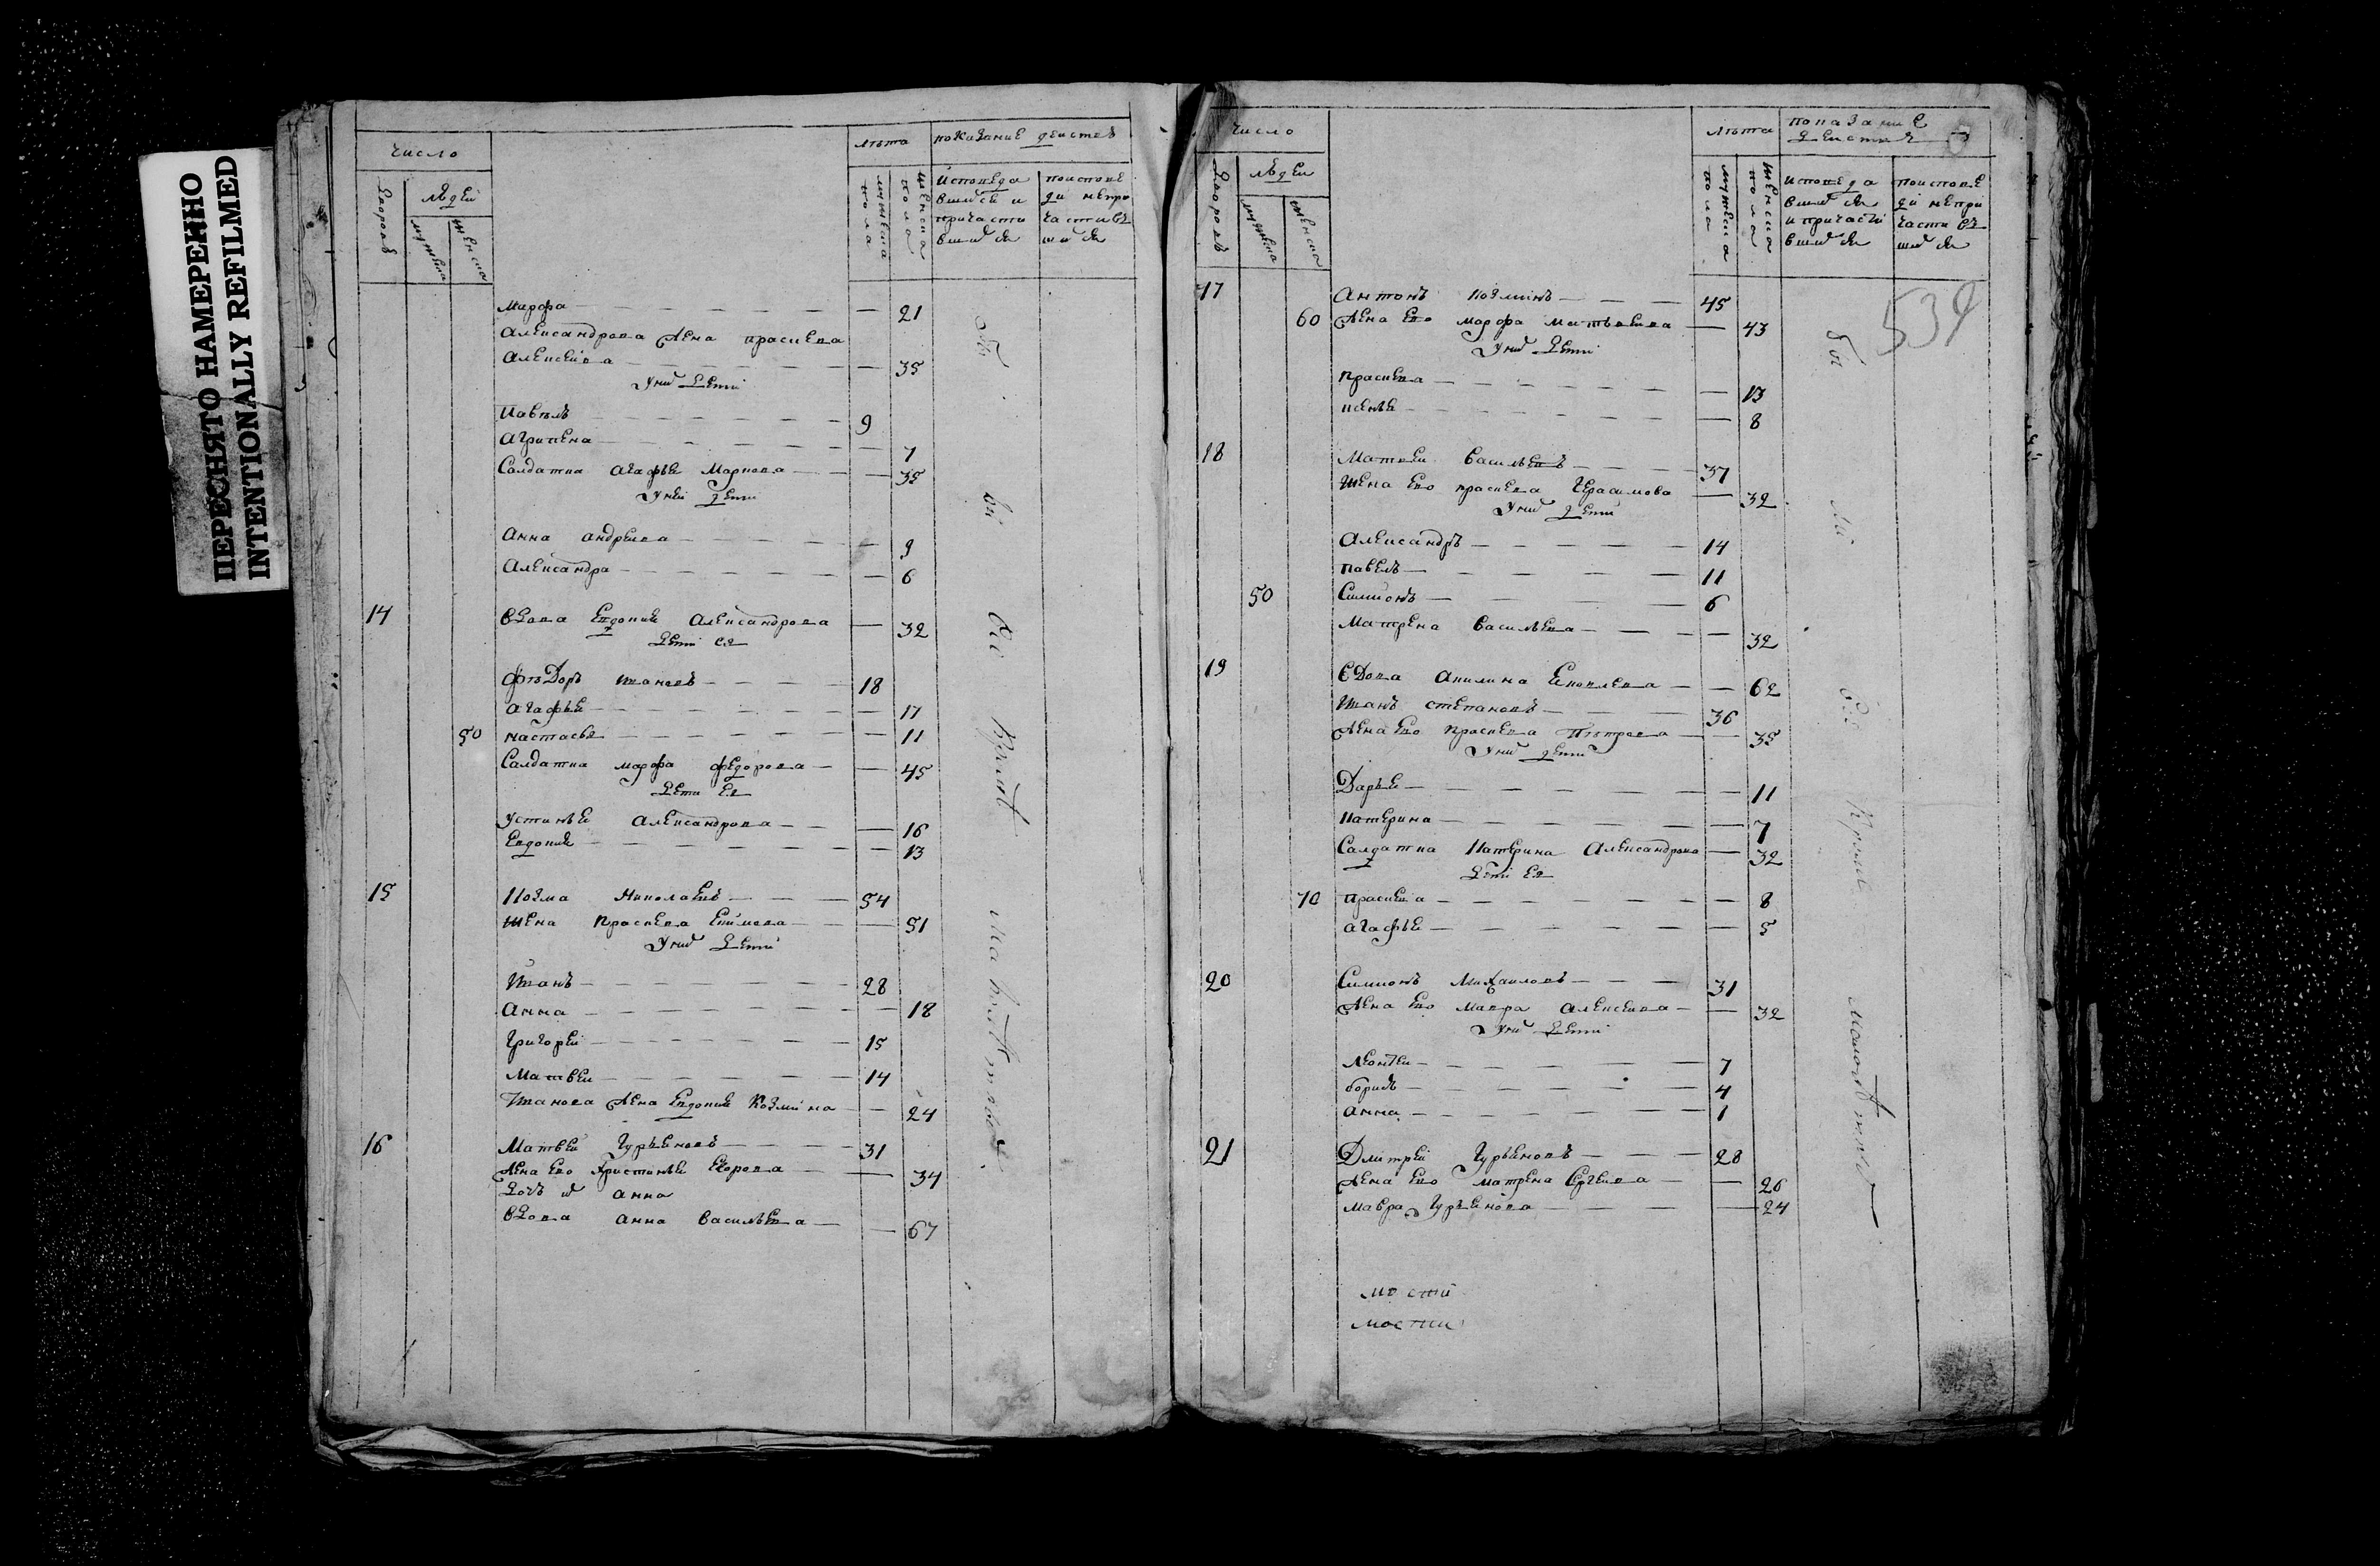 ПЕРЕСНЯТО НАМЕРЕННО
INTENTIONALLY REFILMED
число
лѣта
показание действъ
дворовъ
людей
мужеска
женска
мужеска пола
женска пола
исповеда
вшиися и
причасти
вшиися
поиспове
ди непри
частивъ
шиися
Марфа — — 21
Александрова жена праскева
Алексеива — — 35
Уних дети
Павелъ — 9
Агрипена — — 7
Салдатка агафья Маркова — — 35
Уней дети
Анна андреива — — 9
Александра — — 6
14 вдова Евдокия Александрова — 32
дети ея
Фѣдоръ Ивановъ — 18
агафья — — 17
50 настасья — — 11
Салдатка марфа федорова — — 45
дети ея
Устинья Александрова — — 16
Евдокия — — 13
15 Козма Николаевъ — 54
жена Праскева Ефимова — — 51
Уних дети
Иванъ — 28
Анна — — 18
Григорей — 15
Матвей — 14
Иванова жена Евдокия Козмина — — 24
16 Матвей Гурьяновъ — 31
жена ево Христинья Егорова — 34
дочь их анна
вдова анна васильева — — 67
число
лѣта
показание
действъ
534
дворовъ
людей
мужеска
женска
мужеска пола
женска пола
исповеда
вшиися
и причасти
вшиися
поиспове
ди непри
частивъ
шиися
17 Антонъ Козминъ — 45
60 жена ево марфа матвеива — 43
Уних дети
праскева — — 13
ксенья — — 8
18 Матвей васильевъ — 37
жена ево праскева Герасимова — 32
Уних дети
Александръ — 14
павелъ — 11
50 Симионъ — 6
Матрена васильева — — 32
19 вдова Акилина Яковлева — — 62
Иванъ степановъ — 36
жена ево праскева Петрова — 35
Уних дети
Дарья — — 11
Катерина — — 7
Салдатка Катерина Александрова — 32
дети ея
70 праскева — — 8
агафья — — 5
20 Симионъ Михаиловъ — 31
жена ево мавра алексеива — — 32
Уних дети
Леонтей — 7
борисъ — 4
анна — — 1
21 Дмитрей Гурьяновъ — 28
жена ево матрена Сргеива — — 26
мавра Гурьянова — — 24
мости
мостии